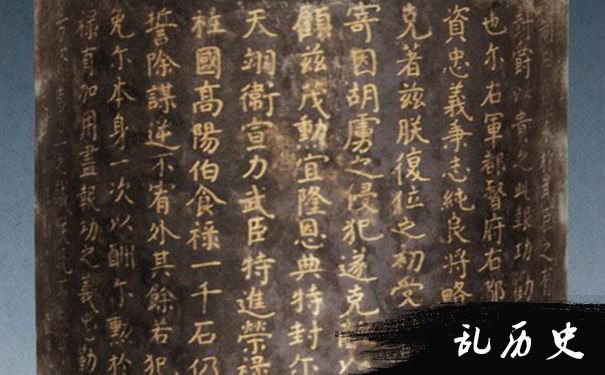 之有
封爵以貴之此報功勸
也尔右軍都督府右都
資忠義秉志純良將略
克著兹朕復位之初受
寄因胡虜之侵犯遂克
顧兹茂勳宜隆恩典特封尔
天翊衛宣力武臣特進榮祿
柱國高陽伯食祿一千石仍
誓除謀逆不宥外其餘若犯
免尔本身一次以酬尔勲於
祿有加用盡報功之義尤勤
乱历史